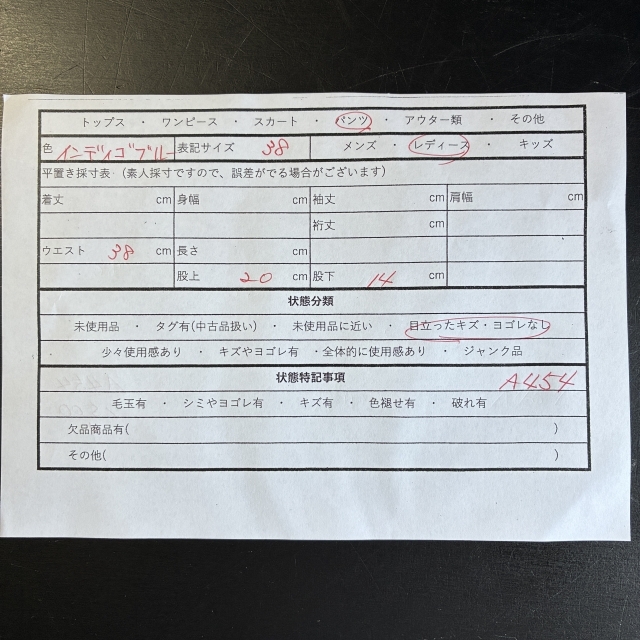 トップス ・ ワンピース ・ スカート ・ パンツ ・ アウター類 ・ その他
色 インディゴブルー 表記サイズ 38 メンズ ・ レディース ・ キッズ
平置き採寸表 (素人採寸ですので、誤差がでる場合がございます)
着丈 cm 身幅 cm 袖丈 cm 肩幅 cm
裄丈 cm
ウエスト 38 cm 長さ cm
股上 20 cm 股下 14 cm
状態分類
未使用品 ・ タグ有(中古品扱い) ・ 未使用品に近い ・ 目立ったキズ・ヨゴレなし
少々使用感あり ・ キズやヨゴレ有 ・全体的に使用感あり ・ ジャンク品
状態特記事項 A454
毛玉有 ・ シミやヨゴレ有 ・ キズ有 ・ 色褪せ有 ・ 破れ有
欠品商品有( )
その他( )